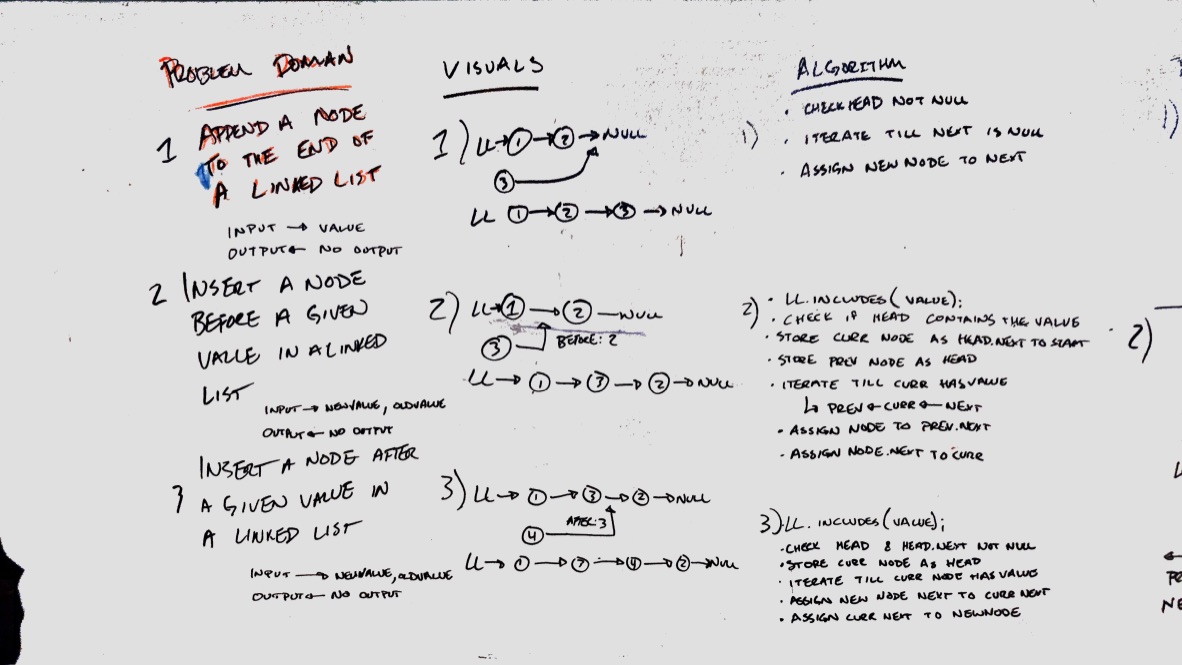 PROBLEM DOMAIN
1 APPEND A NODE
TO THE END OF
A LINKED LIST
INPUT → VALUE
OUTPUT ← NO OUTPUT
2 INSERT A NODE
BEFORE A GIVEN
VALUE IN A LINKED
LIST
INPUT → NEWVALUE, OLDVALUE
OUTPUT ← NO OUTPUT
INSERT A NODE AFTER
3 A GIVEN VALUE IN
A LINKED LIST
INPUT → NEWVALUE, OLDVALUE
OUTPUT ← NO OUTPUT
VISUALS
1) LL → 1 → 2 → NULL
3
LL 1 → 2 → 3 → NULL
2) LL → 1 → 2 — NULL
3 BEFORE: 2
LL → 1 → 3 → 2 → NULL
3) LL → 1 → 3 → 2 → NULL
4 AFTER: 3
LL → 1 → 3 → 4 → 2 → NULL
ALGORITHM
· CHECK HEAD NOT NULL
1) · ITERATE TILL NEXT IS NULL
· ASSIGN NEW NODE TO NEXT
2) · LL.INCLUDES(VALUE);
· CHECK IF HEAD CONTAINS THE VALUE
· STORE CURR NODE AS HEAD.NEXT TO START
· STORE PREV NODE AS HEAD
· ITERATE TILL CURR HAS VALUE
↳ PREV ← CURR ← NEXT
· ASSIGN NODE TO PREV.NEXT
· ASSIGN NODE.NEXT TO CURR
3) · LL.INCLUDES(VALUE);
· CHECK HEAD & HEAD.NEXT NOT NULL
· STORE CURR NODE AS HEAD
· ITERATE TILL CURR NODE HAS VALUE
· ASSIGN NEW NODE NEXT TO CURR NEXT
· ASSIGN CURR NEXT TO NEWNODE
1)
2)